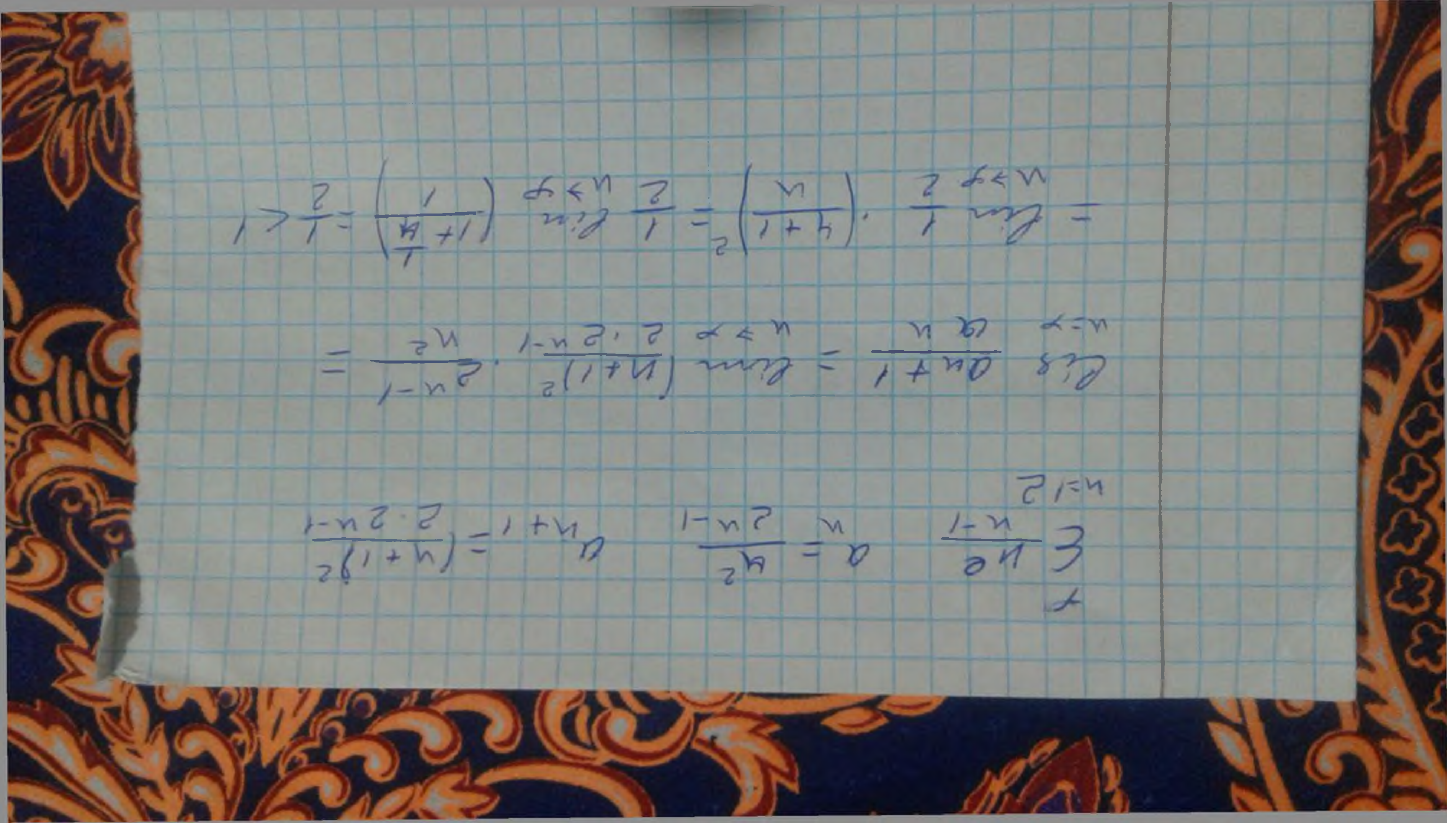 ∞
Σ n²/2^(n-1) a_n = n²/2^(n-1) a_(n+1) = (n+1)²/(2·2^(n-1))
n=1
lim a_(n+1)/a_n = lim (n+1)²/(2·2^(n-1)) · 2^(n-1)/n² =
n→∞ n→∞
= lim 1/2 · ((n+1)/n)² = 1/2 lim ((1+1/n)/1) = 1/2 < 1
n→∞ n→∞